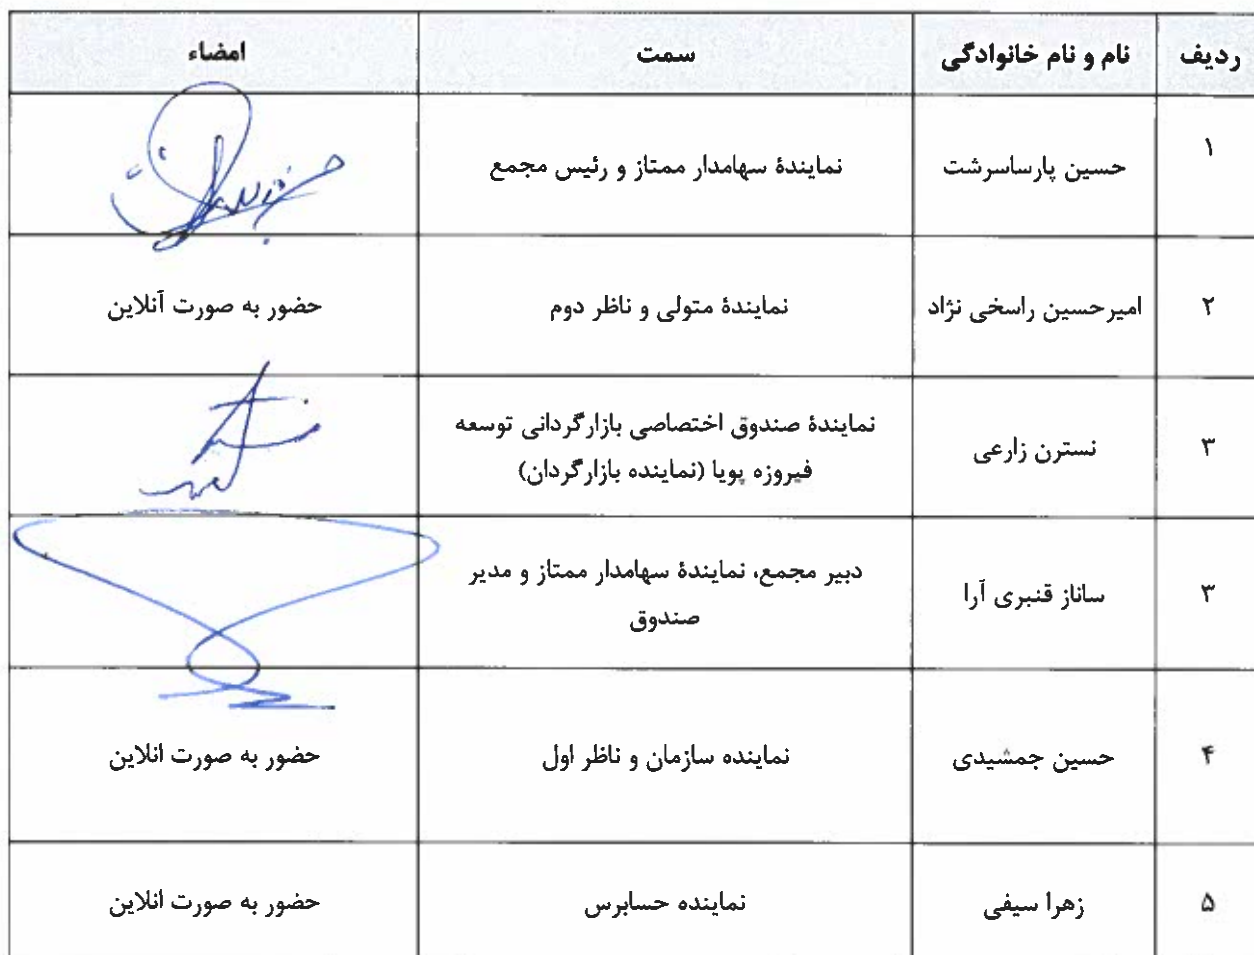 ردیف نام و نام خانوادگی سمت امضاء
۱ حسین پارساسرشت نمایندهٔ سهامدار ممتاز و رئیس مجمع
۲ امیرحسین راسخی نژاد نمایندهٔ متولی و ناظر دوم حضور به صورت آنلاین
۳ نسترن زارعی نمایندهٔ صندوق اختصاصی بازارگردانی توسعه
فیروزه پویا (نماینده بازارگردان)
۳ ساناز قنبری آرا دبیر مجمع، نمایندهٔ سهامدار ممتاز و مدیر
صندوق
۴ حسین جمشیدی نماینده سازمان و ناظر اول حضور به صورت انلاین
۵ زهرا سیفی نماینده حسابرس حضور به صورت انلاین